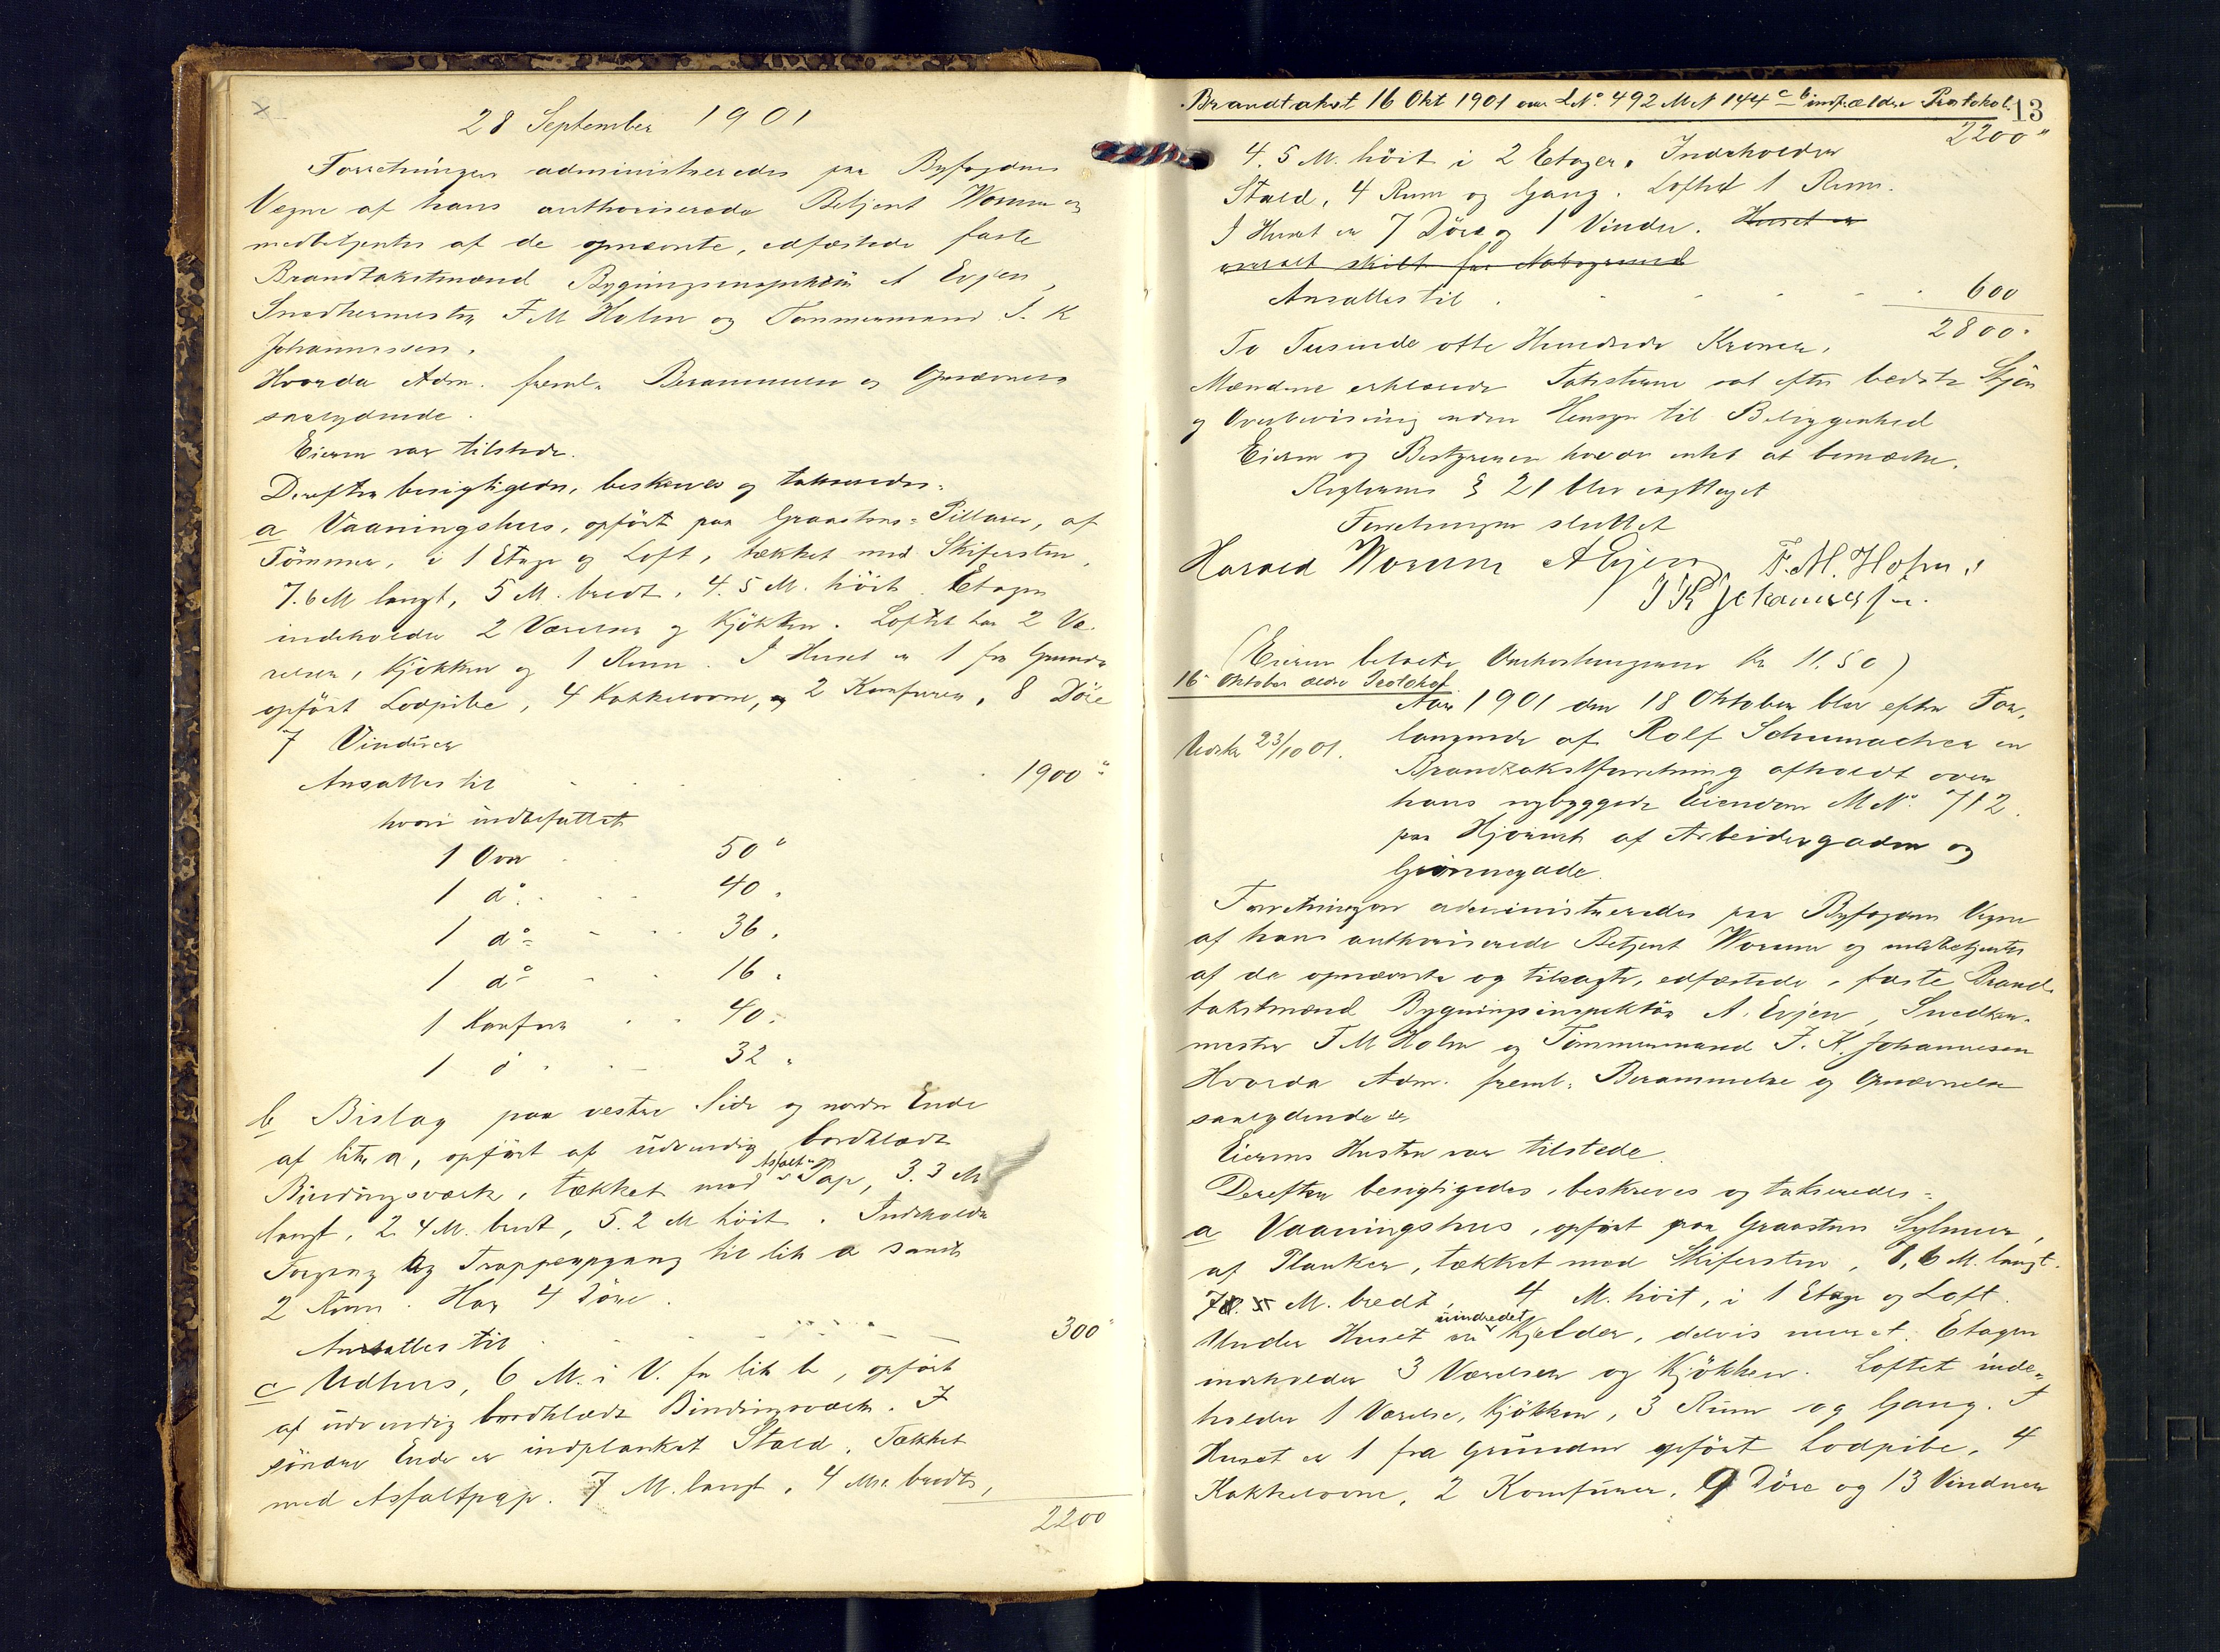 28 September 1901
Forretningen administreredes paa Byfogdens
Vegne af hans authoriserede Betjent Worum og
medbetjentes af de opnævnte, edfæstede faste
Brandtakstmænd Bygningsinspektör A Evjen,
Snedkermester F M Holm og Tömmermand J. K
Johannessen.
Hvorda Adm. freml. Berammelse og Opnævnelse
saalydende.
Eieren var tilstede.
Derefter besigtigedes, beskreves og takseredes:
a Vaaningshus, opfört paa Graastens-Pillarer, af
Tömmer, i 1 Etage og Loft, tækket med Skifersten,
7.6 M langt, 5 M. bredt, 4.5 M. höit. Etagen
indeholder 2 Værelser og Kjökken. Loftet har 2 Væ-
relser, Kjøkken og 1 Rum. I Huset er 1 fra Grunde
opfört Lodpibe, 4 Kakkelovne, og 2 Komfurer, 8 Döre
7 Vinduer
Ansattes til 1900"
hvori indbefattet
1 Ovn 50"
1 do. 40.
1 do 36.
1 do 16.
1 Komfur 40.
1 d 32.
b Bislag paa vestre Side og nordre Ende
af litr a, opfört af udvendig bordklædt
Bindingsværk, tækket med Asfalt-Pap, 3.3 M
langt, 2.4 M. bredt, 5.2 M höit. Indeholder
Indgang og Trappeopgang til litr a samt
2 Rum. Har 4 Döre.
Ansattes til 300"
c Udhus, 6 M. i V. fra litr b, opfört
af udvendig bordklædt Bindingsværk. I
söndre Ende er indplanket Stald. Tækket
med Asfaltpap. 7 M. langt, 4 M. bredt,
2200
Brandtakst 16 Okt 1901 over LNo. 492 MN 144 c b indf. ældre Protokol.
13
2200"
4.5 M. höit i 2 Etager. Indeholder
Stald, 4 Rum og Gang. Loftet 1 Rum.
I Huset er 7 Döre og 1 Vindu. Huset er
overalt skilt fra Nabogrund
Ansattes til 600
2800.
To Tusinde otte Hundrede Kroner.
Mændene erklærede Taksterne sat efter bedste Skjön
og Overbevisning uden Hensyn til Beliggenhed
Eieren og Bestyreren havde intet at bemærke.
Reglerne § 21 blev iagttaget
Forretningen sluttet
Harald Worum A Evjen F. M. Holm.
J K Johannessen.
(Eieren betalte Omkostningerne Kr 11.50)
16 Oktober ældre Protokol
Aar 1901 den 18 Oktober blev efter For-
langende af Rolf Schumacher en
Brandtakstforretning afholdt over
hans nybyggede Eiendom MNo. 712
paa Hjörnet af Arbeidergaden og
Grönnegade.
Udskr 23/10 01.
Forretningen administreredes paa Byfogdens Vegne
af hans authoriserede Betjent Worum og medbetjentes
af de opnævnte og tilsagte, edfæstede, faste Brand-
takstmænd Bygningsinspektör A. Evjen, Snedker-
mester F M Holm og Tömmermand J. K. Johannesen
Hvorda Adm. freml. Berammelse og Opnævnelse
saalydende
Eierens Hustru var tilstede.
Derefter besigtigedes, beskreves og takseredes:
a Vaaningshus, opfört paa Graastens Sylmur,
af Planker, tækket med Skifersten, 8,6 M. langt.
7.5 M. bredt, 4 M. höit, i 1 Etage og Loft.
Under Huset er uindredet Kjelder, delvis muret. Etagen
indeholder 3 Værelser og Kjökken. Loftet inde-
holder 1 Værelse, Kjökken, 3 Rum og Gang. I
Huset er 1 fra Grunden opfört Lodpibe, 4
Kakkelovne, 2 Komfurer, 9 Döre og 13 Vinduer